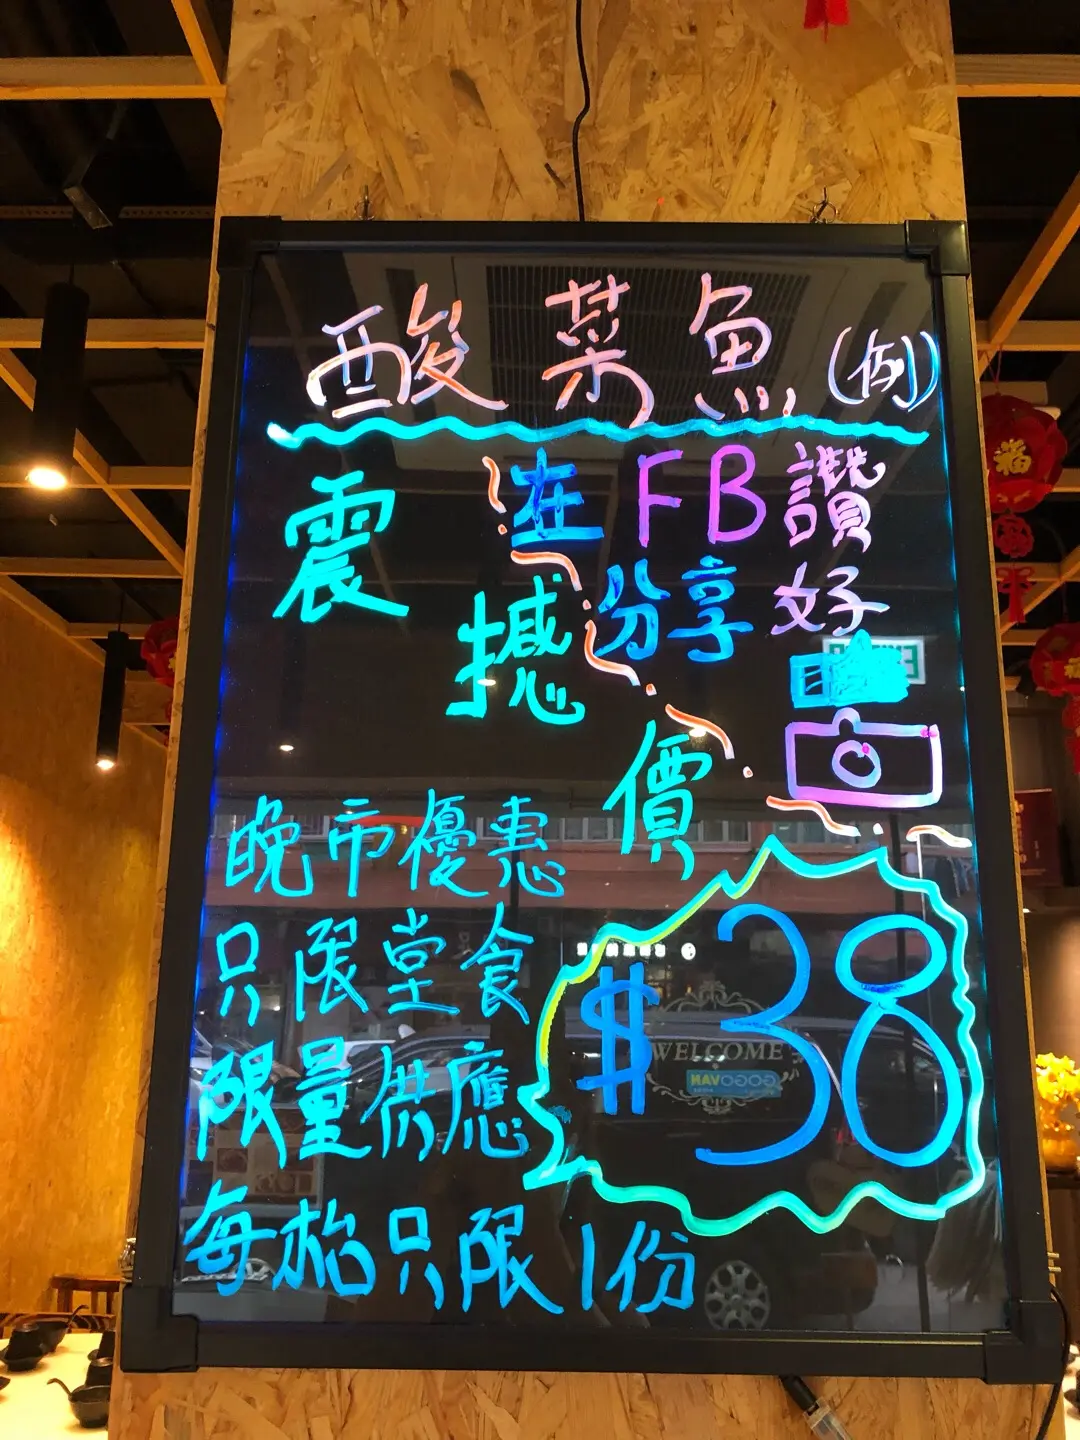 酸菜魚(例)
震撼價
在FB讚好
分享
$38
晚市優惠
只限堂食
限量供應
每枱只限1份
WELCOME
GOGOVAN
福